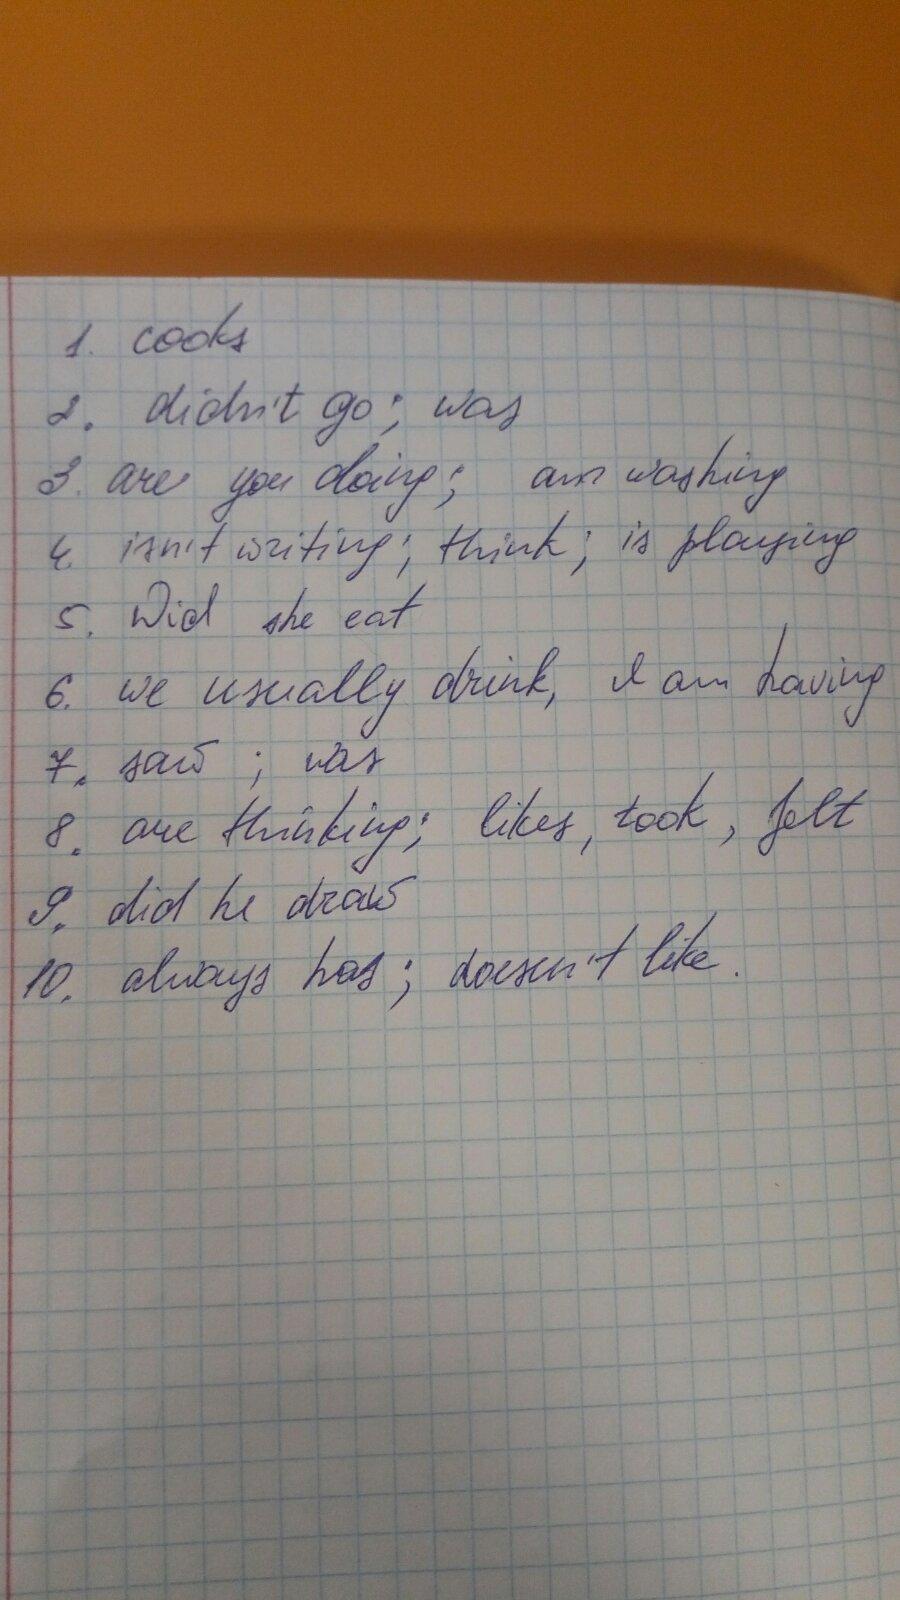 1. cooks
2. didn't go; was
3. are you doing; am washing
4. isn't writing; think; is playing
5. Did she eat
6. we usually drink, I am having
7. saw ; was
8. are thinking; likes, took, felt
9. did he draw
10. always has; doesen't like.